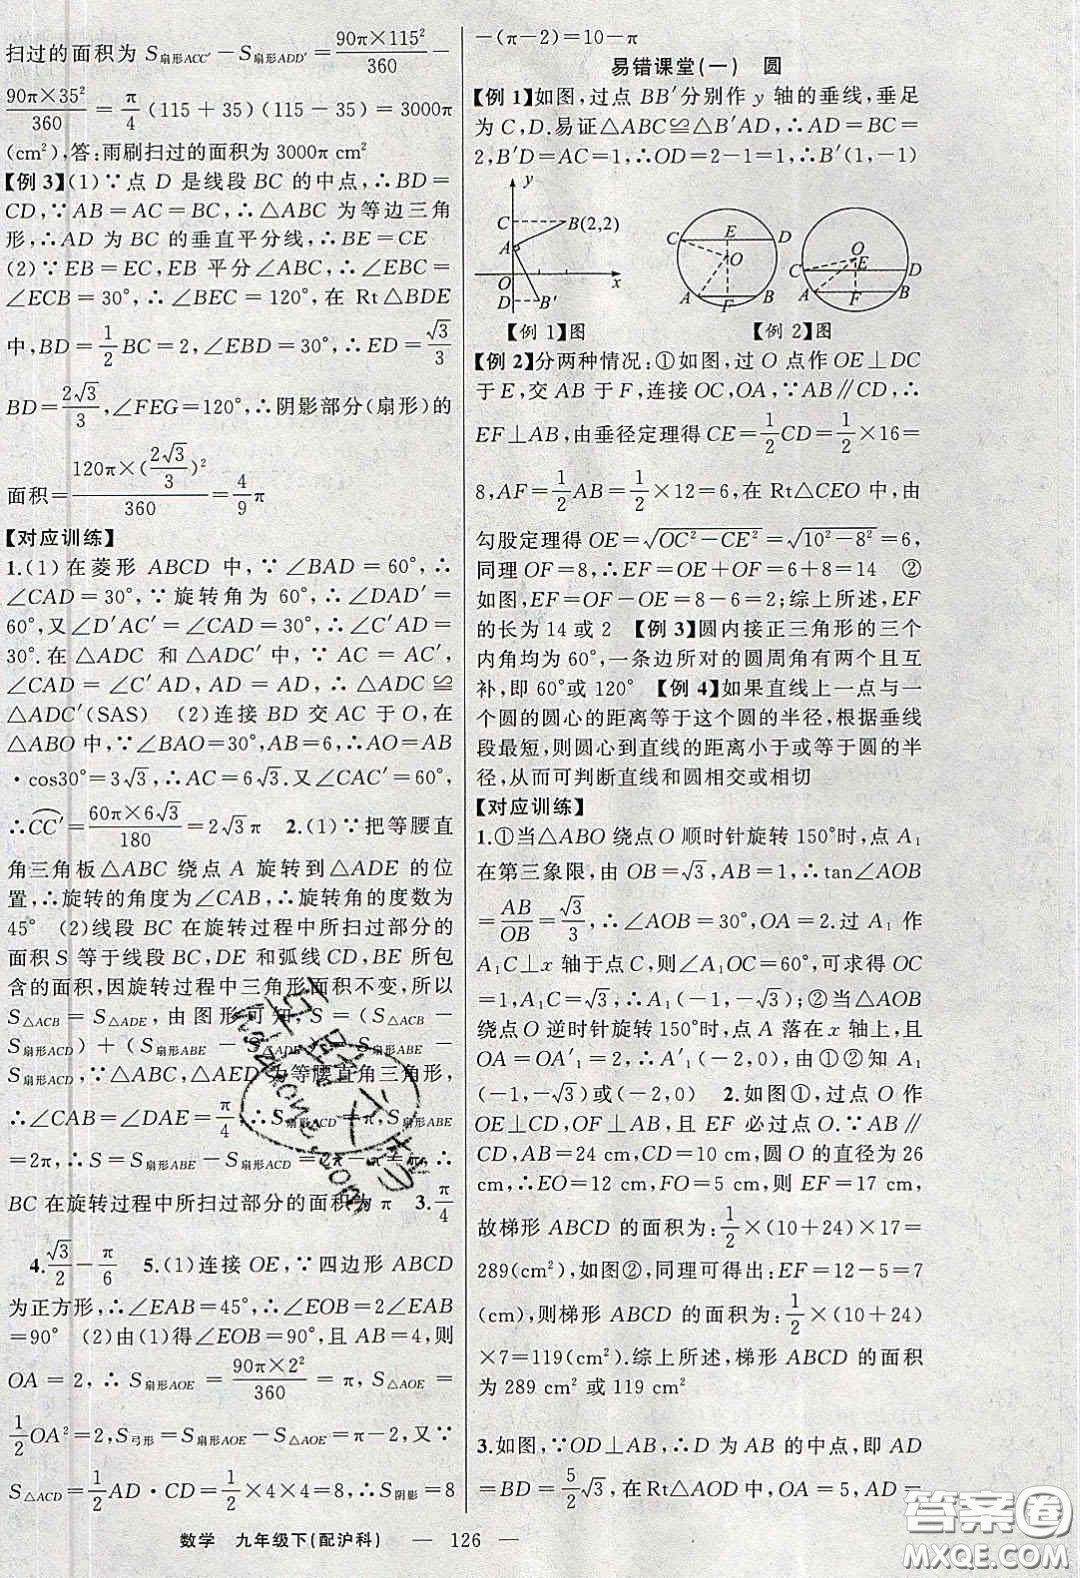 扫过的面积为 S扇形ACC′－S扇形ADD′＝90π×115²/360－
90π×35²/360＝π/4(115＋35)(115－35)＝3000π
(cm²),答:雨刷扫过的面积为3000π cm²
【例3】(1)∵点 D 是线段 BC 的中点,∴BD＝
CD,∵AB＝AC＝BC,∴△ABC 为等边三角
形,∴AD 为 BC 的垂直平分线,∴BE＝CE
(2)∵EB＝EC,EB 平分∠ABC,∴∠EBC＝
∠ECB＝30°,∴∠BEC＝120°,在 Rt△BDE
中,BD＝1/2BC＝2,∠EBD＝30°,∴ED＝√3/3
BD＝2√3/3,∠FEG＝120°,∴阴影部分(扇形)的
面积＝120π×(2√3/3)²/360＝4/9π
【对应训练】
1.(1)在菱形 ABCD 中,∵∠BAD＝60°,∴
∠CAD＝30°,∵旋转角为60°,∴∠DAD′＝
60°,又∠D′AC′＝∠CAD＝30°,∴∠C′AD＝
30°.在△ADC 和△ADC′中,∵AC＝AC′,
∠CAD＝∠C′AD,AD＝AD,∴△ADC≌
△ADC′(SAS) (2)连接 BD 交 AC 于 O,在
△ABO 中,∵∠BAO＝30°,AB＝6,∴AO＝AB
·cos30°＝3√3,∴AC＝6√3.∵∠CAC′＝60°,
∴CC′＝60π×6√3/180＝2√3π 2.(1)∵把等腰直
角三角板△ABC 绕点 A 旋转到△ADE 的位
置,∴旋转的角度为∠CAB,∴旋转角的度数为
45° (2)线段 BC 在旋转过程中所扫过部分的
面积 S 等于线段 BC,DE 和弧线 CD,BE 所包
含的面积,因旋转过程中三角形面积不变,所以
S△ACB＝S△ADE,由图形可知,S＝(S△ACB－
S扇形ACD)＋(S扇形ABE－S△ADE)＝S扇形ABE－
S扇形ACD,∵△ABC,△AED为等腰直角三角形,
∴∠CAB＝∠DAE＝π/4,∴S扇形ACD＝π,S扇形ABE
＝2π,∴S＝S扇形ABE－S扇形ACD＝2π－π＝π,∴
BC 在旋转过程中所扫过部分的面积为 π 3.π/4
4.√3/2－π/6 5.(1)连接 OE,∵四边形 ABCD
为正方形,∴∠EAB＝45°,∴∠EOB＝2∠EAB
＝90° (2)由(1)得∠EOB＝90°,且 AB＝4,则
OA＝2,∴S扇形AOE＝90π×2²/360＝π,S△AOE＝
1/2OA²＝2,S弓形＝S扇形AOE－S△AOE＝π－2,又∵
S△ACD＝1/2AD·CD＝1/2×4×4＝8,∴S阴影＝8
－(π－2)＝10－π
易错课堂(一) 圆
【例1】如图,过点 BB′分别作 y 轴的垂线,垂足
为 C,D.易证△ABC≌△B′AD,∴AD＝BC＝
2,B′D＝AC＝1,∴OD＝2－1＝1,∴B′(1,－1)
y
C
B(2,2)
A
O
x
D
B′
C
E
D
O
A
F
B
O
C
E
D
A
F
B
【例1】图
【例2】图
【例2】分两种情况:①如图,过 O 点作 OE⊥DC
于 E,交 AB 于 F,连接 OC,OA,∵AB∥CD,∴
EF⊥AB,由垂径定理得 CE＝1/2CD＝1/2×16＝
8,AF＝1/2AB＝1/2×12＝6,在 Rt△CEO 中,由
勾股定理得 OE＝√(OC²－CE²)＝√(10²－8²)＝6,
同理 OF＝8,∴EF＝OE＋OF＝6＋8＝14 ②
如图,EF＝OF－OE＝8－6＝2;综上所述,EF
的长为14或2 【例3】圆内接正三角形的三个
内角均为60°,一条边所对的圆周角有两个且互
补,即60°或120° 【例4】如果直线上一点与一
个圆的圆心的距离等于这个圆的半径,根据垂线
段最短,则圆心到直线的距离小于或等于圆的半
径,从而可判断直线和圆相交或相切
【对应训练】
1.①当△ABO 绕点 O 顺时针旋转150°时,点 A₁
在第三象限,由 OB＝√3,AB＝1,∴tan∠AOB
＝AB/OB＝√3/3,∴∠AOB＝30°,OA＝2.过 A₁ 作
A₁C⊥x 轴于点 C,则∠A₁OC＝60°,可求得 OC
＝1,A₁C＝√3,∴A₁(－1,－√3);②当△AOB
绕点 O 逆时针旋转150°时,点 A 落在 x 轴上,且
OA＝OA′₁＝2,∴A′₁(－2,0),由①②知 A₁
(－1,－√3)或(－2,0) 2.如图①,过点 O 作
OE⊥CD,OF⊥AB,且 EF 必过点 O.∵AB∥
CD,AB＝24 cm,CD＝10 cm,圆 O 的直径为26
cm,∴EO＝12 cm,FO＝5 cm,则 EF＝17 cm,
故梯形 ABCD 的面积为:1/2×(10＋24)×17＝
289(cm²),如图②,同理可得出:EF＝12－5＝7
(cm),则梯形 ABCD 的面积为:1/2×(10＋24)
×7＝119(cm²).综上所述,梯形 ABCD 的面积
为289 cm²或119 cm²
3.如图,∵OD⊥AB,∴D 为 AB 的中点,即 AD
＝BD＝5/2√3,在 Rt△AOD 中,OA＝5,AD＝
数学 九年级下(配沪科) — 126 —
答案圈
MXQE.COM